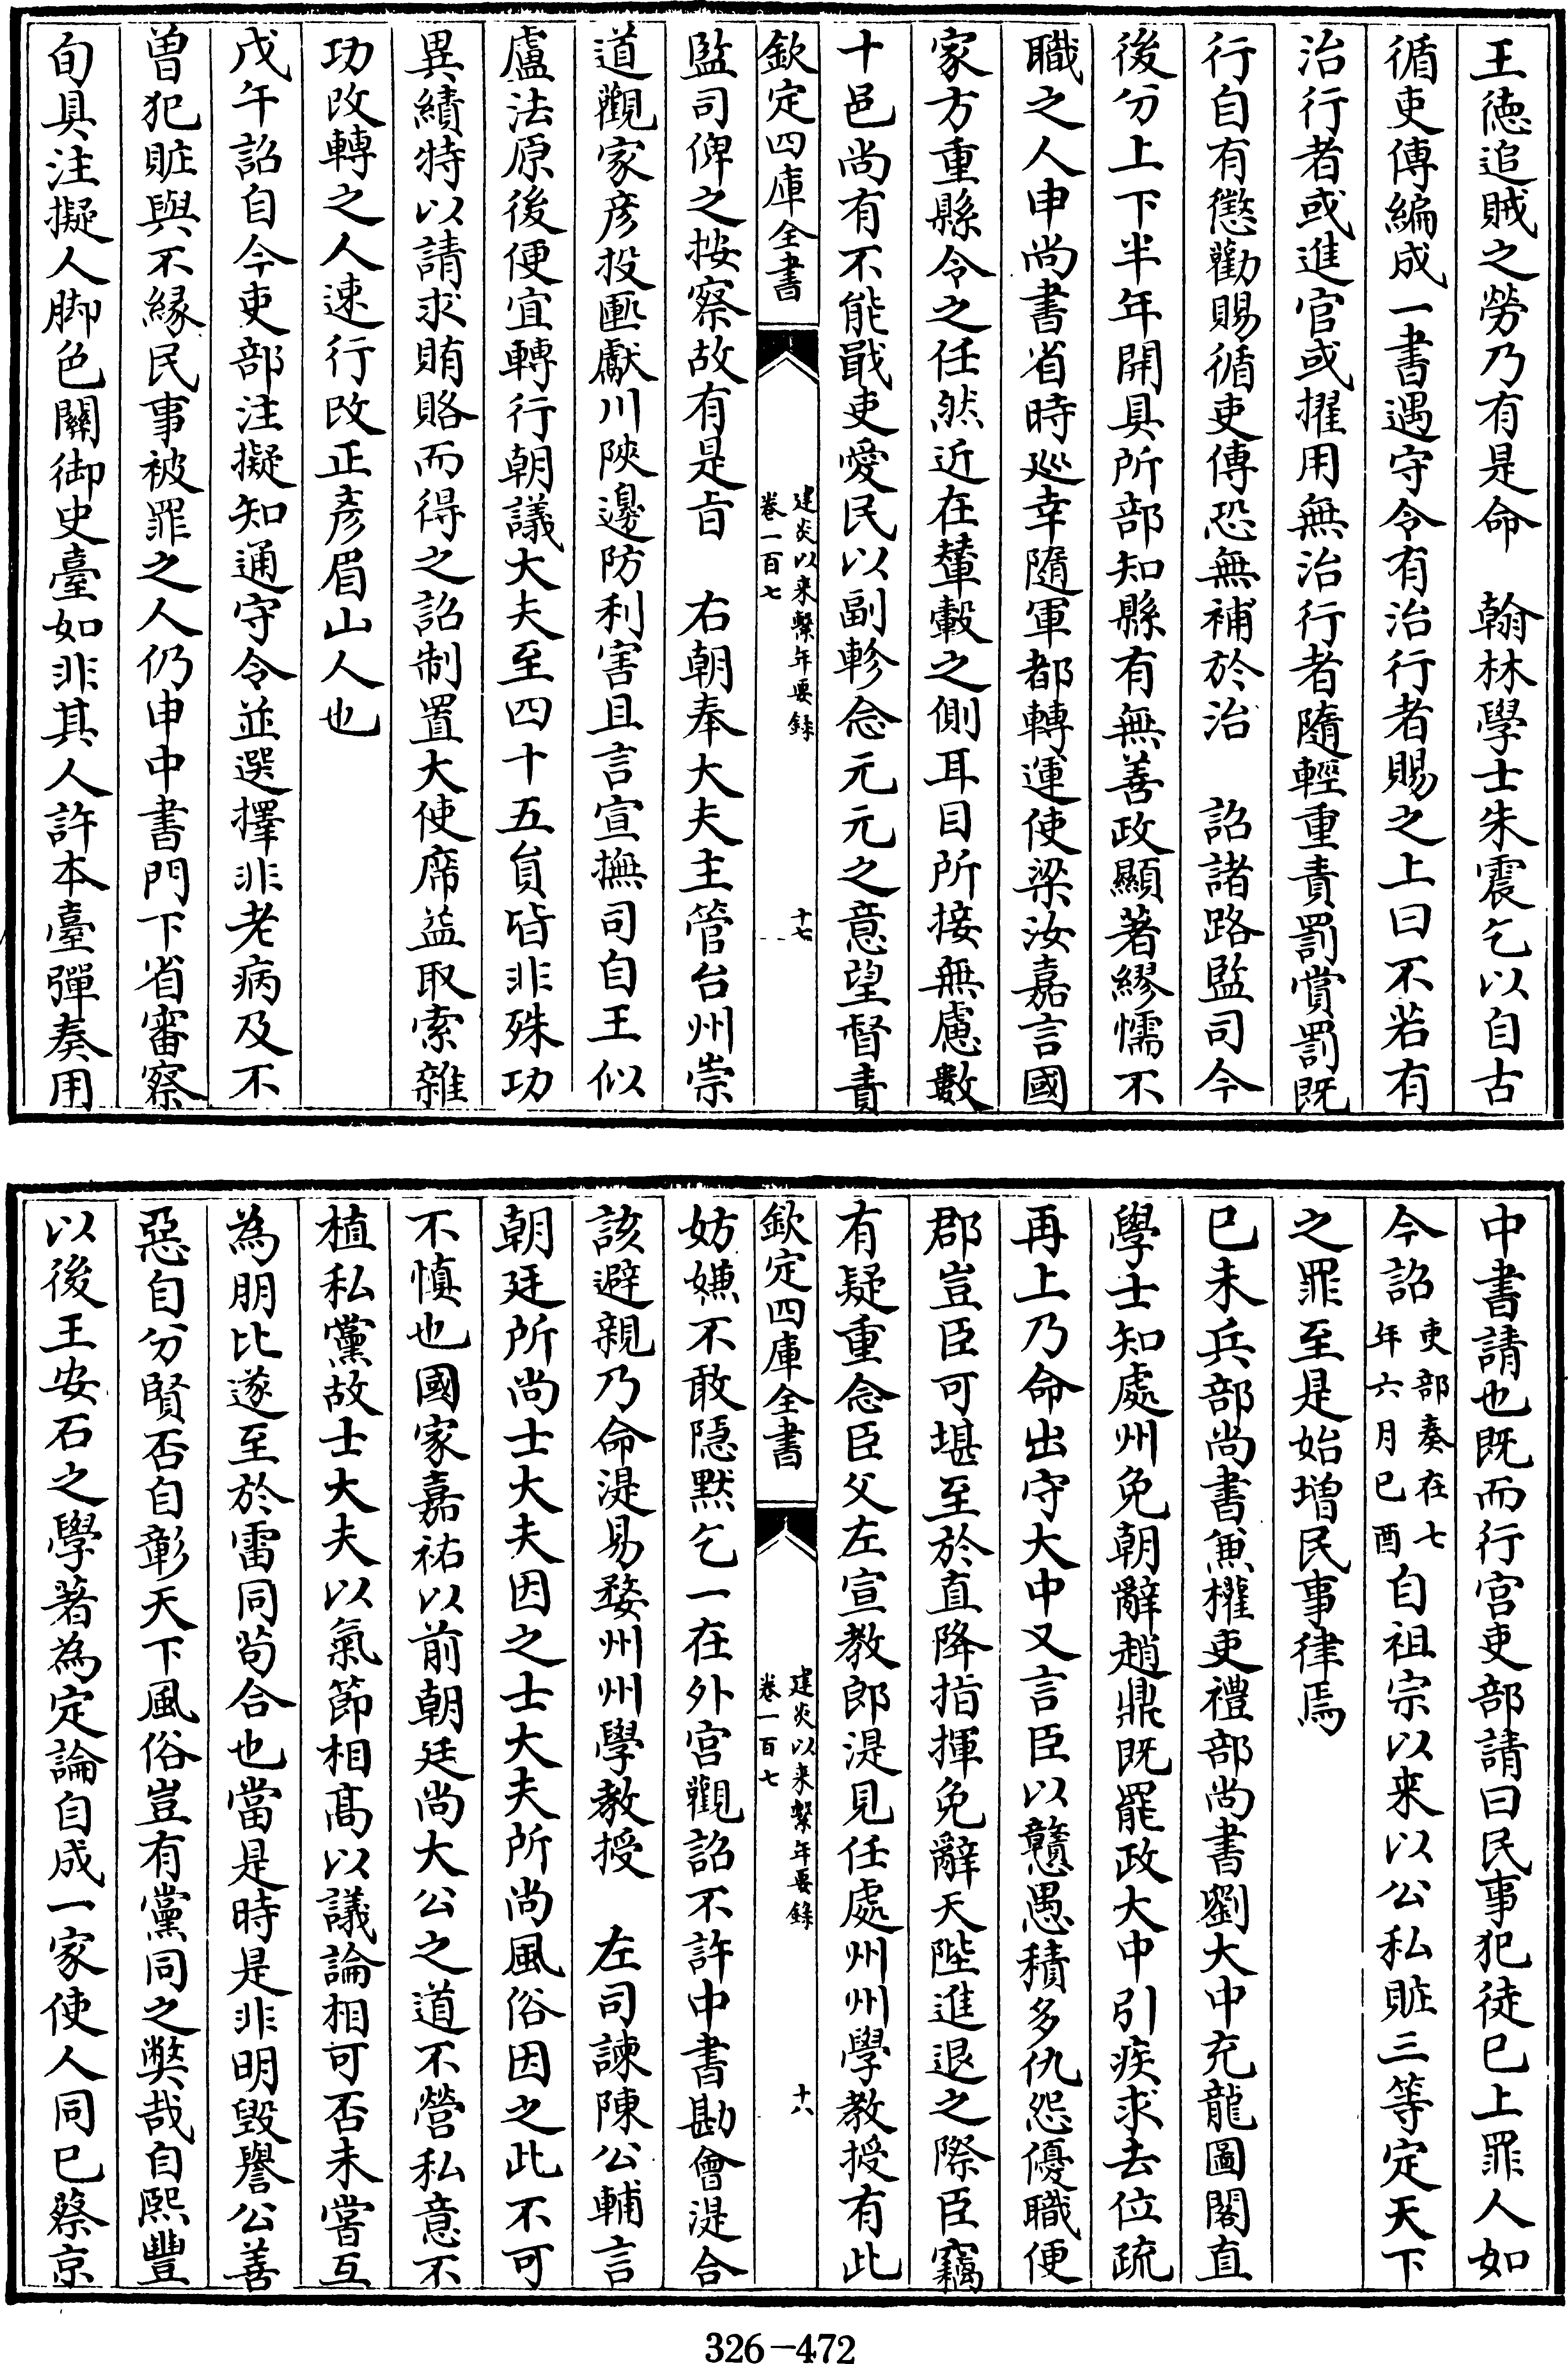 王德追賊之勞乃有是命　翰林學士朱震乞以自古
循吏傳編成一書遇守令有治行者賜之上曰不若有
治行者或進官或擢用無治行者隨輕重責罰賞罰既
行自有懲勸賜循吏傳恐無補於治　詔諸路監司今
後分上下半年開具所部知縣有無善政顯著繆懦不
職之人申尚書省時巡幸隨軍都轉運使梁汝嘉言國
家方重縣令之任然近在輦轂之側耳目所接無慮數
十邑尚有不能戢吏愛民以副軫念元元之意望督責
欽定四庫全書
建炎以来繫年要錄
卷一百七
十七
監司俾之按察故有是旨　右朝奉大夫主管台州崇
道觀家彦投匭獻川陝邊防利害且言宣撫司自王似
盧法原後便宜轉行朝議大夫至四十五員皆非殊功
異績特以請求賄賂而得之詔制置大使席益取索雜
功改轉之人速行改正彥眉山人也
戊午詔自今吏部注擬知通守令並選擇非老病及不
曽犯贓與不緣民事被罪之人仍申中書門下省審察
旬具注擬人脚色關御史臺如非其人許本臺彈奏用
中書請也既而行宫吏部請曰民事犯徒巳上罪人如
今詔吏部奏在七年六月巳酉自祖宗以来以公私贓三等定天下
之罪至是始增民事律焉
巳未兵部尚書兼權吏禮部尚書劉大中充龍圖閣直
學士知處州免朝辭趙鼎既罷政大中引疾求去位疏
再上乃命出守大中又言臣以戇愚積多仇怨優職便
郡豈臣可堪至於直降指揮免辭天陛進退之際臣竊
有疑重念臣父左宣教郎湜見任處州州學教授有此
欽定四庫全書
建炎以来繫年要錄
卷一百七
十八
妨嫌不敢隱默乞一在外宫觀詔不許中書勘會湜合
該避親乃命湜易婺州州學教授　左司諫陳公輔言
朝廷所尚士大夫因之士大夫所尚風俗因之此不可
不慎也國家嘉祐以前朝廷尚大公之道不營私意不
植私黨故士大夫以氣節相高以議論相可否未嘗互
為朋比遂至於雷同茍合也當是時是非明毀譽公善
惡自分賢否自彰天下風俗豈有黨同之弊哉自熙豐
以後王安石之學著為定論自成一家使人同巳蔡京
326-472